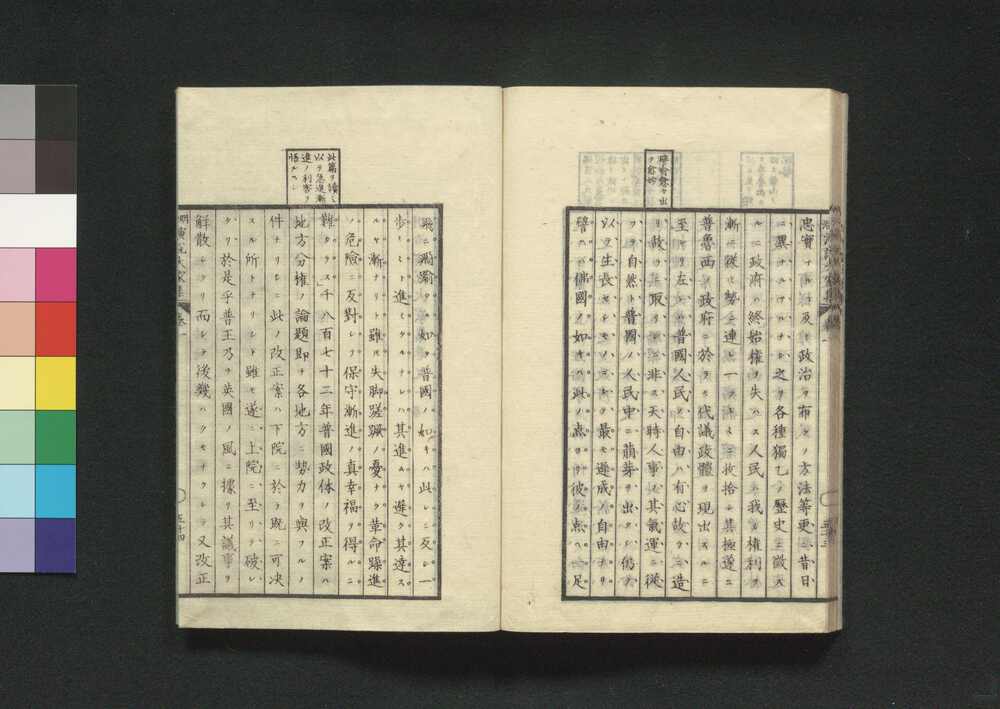 譬喩愈々出
テ愈妙
忠實ナ
及ヒ政治ヲ布クノ方法等更ニ昔日
ニ異ナル
之ヲ各種獨乙ノ歷史ニ徵ス
ルニ政府ハ終始權ヲ失ハス人民ハ我カ權利ヲ
漸ニ從ヒ勢ニ連ヒ
其極遂ニ
普魯西ノ政府ニ於テ代議政體ヲ現出スルニ
至レリ左レハ普國人民ノ自由ハ有心故ラニ造
リ故ラニ取リシニ非ス天時人事ノ其氣運ニ從
フテ自然ト普國ノ人民中ニ萌芽ヲ出タシ
以テ生長セシモノニシテ最モ遲成ノ自由ナリ
譬ヘハ佛國ノ如キハ此ノ点ヨリ彼ノ点ヘ一足
此篇ヲ讀ミ
以テ急進漸
進ノ利害ヲ
悟ルヘシ
飛ニ
如ク普國ノ如キハ此レニ反シ一
步一ミト進ミタルナレハ其進ムヤ遲ク其達ス
ルヤ漸ナリト雖ㇳモ失脚蹉躓ノ憂ナク革命躁進
ノ危險ニ反對シテ保守漸進ノ真幸福ヲ得ルニ
難シタス」千八百七十二年普國政体ノ改正案ハ
地方分權ノ論題即チ各地方ニ勢力ヲ與フルノ
件ナリシニ此ノ改正案ハ下院ニ於テ既ニ可決
スル所トナリシト雖モ遂ニ上院ニ至リテ破レ
タリ於是乎普王乃チ英國ノ風ニ據リ其議事ヲ
解散セシメリ而シテ後幾ハクモナクシテ又改正
卷一
五十四